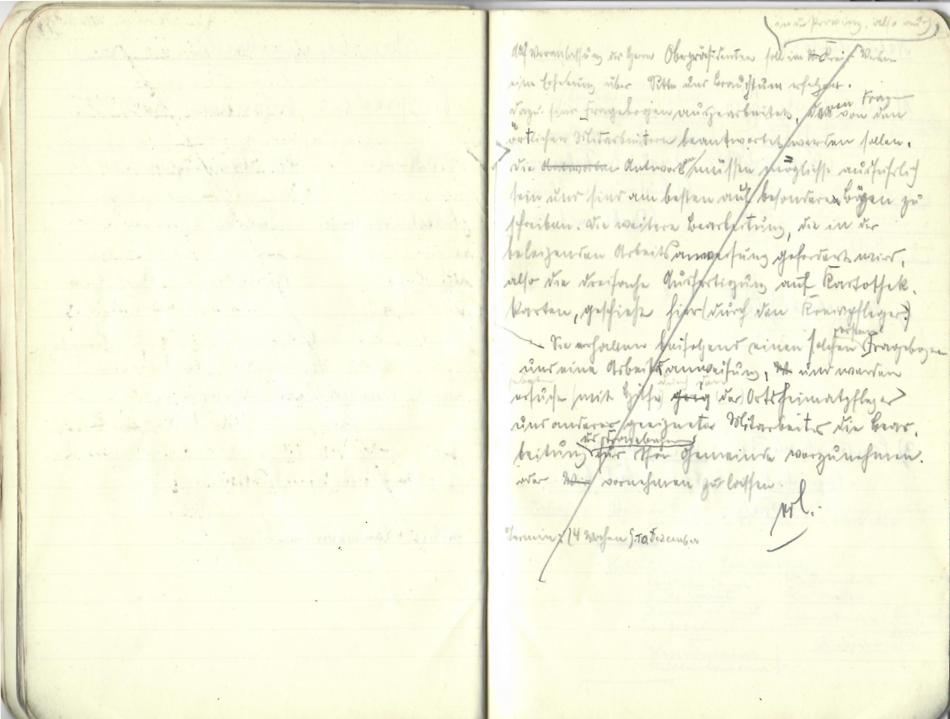 in der Provinz, also auch
Auf Veranlassung des Herrn Oberpräsidenten soll im Kreis
eine Erhebung über Sitte und Brauchtum erfolgen.
Dazu sind Fragebogen ausgearbeitet, deren Frag von den
örtlichen Mitarbeitern beantwortet werden sollen.
Die Antworten Antwort müssen möglichst ausführlich
sein und sind am besten auf besonderen Bögen zu
schreiben. Die weitere Bearbeitung, die in der
beiliegenden Arbeitsanweisung gefordert wird,
also die dreifache Ausfertigung auf Kartothek-
karten, geschieht hier (durch den Kreispfleger.)
Sie erhalten beifolgend einen solchen Fragebogen
und eine Arbeitsanweisung, und werden
ersucht mit Hilfe des Ortsheimatpflegers
und anderer geeigneter Mitarbeiter die Bear-
beitung des Fragebogens für Ihre Gemeinde vorzunehmen.
oder vornehmen zu lassen.
Termin: (4 Wochen) 10. Dezember